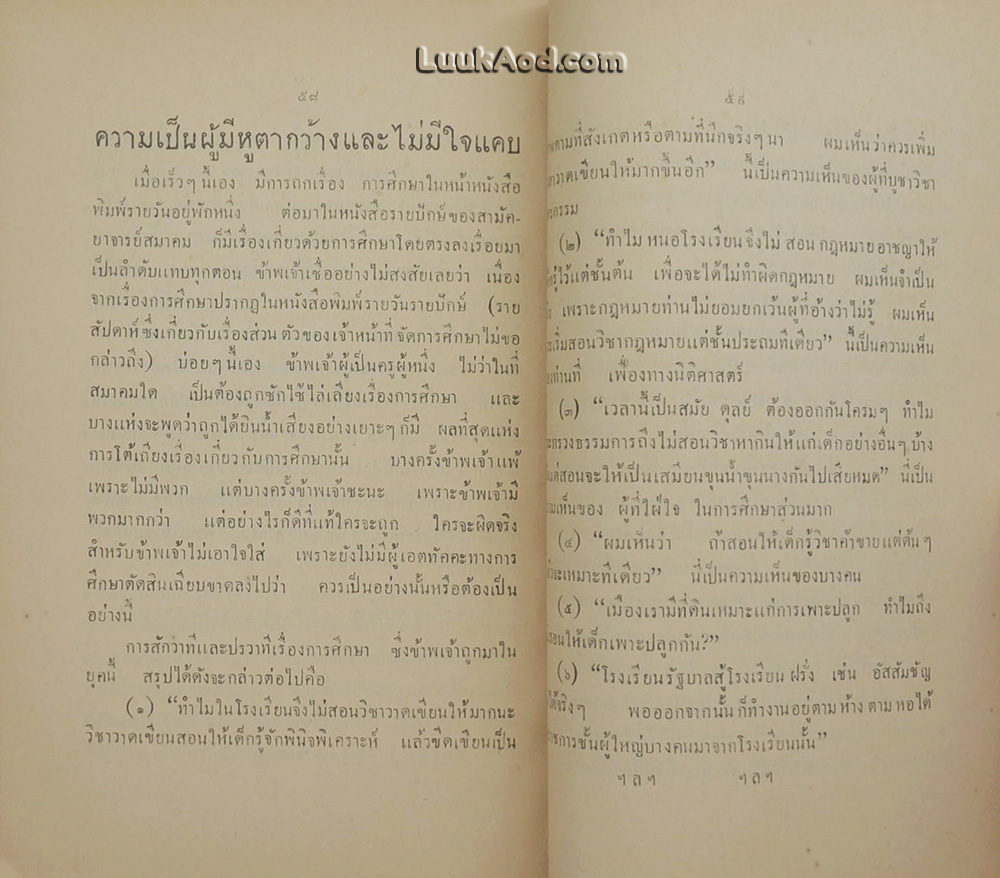 LuukAod.com
๕๘
ความเป็นผู้มีหูตากว้างและไม่มีใจแคบ
เมื่อเร็วๆนี้เอง มีการถกเรื่อง การศึกษาในหน้าหนังสือ
พิมพ์รายวันอยู่พักหนึ่ง ต่อมาในหนังสือรายปักษ์ของสามัค-
ยาจารย์สมาคม ก็มีเรื่องเกี่ยวด้วยการศึกษาโดยตรงลงเรื่อยมา
เป็นลำดับแทบทุกตอน ข้าพเจ้าเชื่ออย่างไม่สงสัยเลยว่า เนื่อง
จากเรื่องการศึกษาปรากฏในหนังสือพิมพ์รายวันรายปักษ์ (ราย
สัปดาห์ซึ่งเกี่ยวกับเรื่องส่วนตัวของเจ้าหน้าที่จัดการศึกษาไม่ขอ
กล่าวถึง) บ่อยๆนี้เอง ข้าพเจ้าผู้เป็นครูผู้หนึ่ง ไม่ว่าในที่
สมาคมใด เป็นต้องถูกซักไซ้ไล่เลียงเรื่องการศึกษา และ
บางแห่งจะพูดว่าถูกได้ยินน้ำเสียงอย่างเยาะๆก็มี ผลที่สุดแห่ง
การโต้เถียงเรื่องเกี่ยวกับการศึกษานั้น บางครั้งข้าพเจ้าแพ้
เพราะไม่มีพวก แต่บางครั้งข้าพเจ้าชะนะ เพราะข้าพเจ้ามี
พวกมากกว่า แต่อย่างไรก็ดีที่แท้ใครจะถูก ใครจะผิดจริง
สำหรับข้าพเจ้าไม่เอาใจใส่ เพราะยังไม่มีผู้เอตทัคคะทางการ
ศึกษาตัดสินเฉียบขาดลงไปว่า ควรเป็นอย่างนั้นหรือต้องเป็น
อย่างนี้
การสักวาทีและปรวาทีเรื่องการศึกษา ซึ่งข้าพเจ้าถูกมาใน
ยุคนี้ สรุปได้ดังจะกล่าวต่อไปคือ
(๑) “ทำไมในโรงเรียนจึงไม่สอนวิชาวาดเขียนให้มากนะ
วิชาวาดเขียนสอนให้เด็กรู้จักพินิจพิเคราะห์ แล้วขีดเขียนเป็น
๕๙
ตามที่สังเกตหรือตามที่นึกจริงๆนา ผมเห็นว่าควรเพิ่ม
วาดเขียนให้มากขึ้นอีก” นี้เป็นความเห็นของผู้ที่บูชาวิชา
กรรม
(๒) “ทำไมหนอโรงเรียนจึงไม่สอนกฎหมายอาชญาให้
รู้ไว้แต่ชั้นต้น เพื่อจะได้ไม่ทำผิดกฎหมาย ผมเห็นจำเป็น
เพราะกฎหมายท่านไม่ยอมยกเว้นผู้ที่อ้างว่าไม่รู้ ผมเห็น
เริ่มสอนวิชากฎหมายแต่ชั้นประถมทีเดียว” นี้เป็นความเห็น
ท่านที่ เฟื่องทางนิติศาสตร์
(๓) “เวลานี้เป็นสมัย ดุลย์ ต้องออกกันโครมๆ ทำไม
กระทรวงธรรมการถึงไม่สอนวิชาหากินให้แก่เด็กอย่างอื่นๆบ้าง
แต่สอนจะให้เป็นเสมียนขุนน้ำขุนนางกันไปเสียหมด” นี่เป็น
เห็นของ ผู้ที่ใฝ่ใจ ในการศึกษาส่วนมาก
(๔) “ผมเห็นว่า ถ้าสอนให้เด็กรู้วิชาค้าขายแต่ต้นๆ
จะเหมาะทีเดียว” นี่เป็นความเห็นของบางคน
(๕) “เมืองเรามีที่ดินเหมาะแก่การเพาะปลูก ทำไมถึง
สอนให้เด็กเพาะปลูกกัน?”
(๖) “โรงเรียนรัฐบาลสู้โรงเรียนฝรั่ง เช่น อัสสัมชัญ
ได้จริงๆ พอออกจากนั้นก็ทำงานอยู่ตามห้างตามหอได้
ราชการชั้นผู้ใหญ่บางคนมาจากโรงเรียนนั้น”
ฯลฯ ฯลฯ